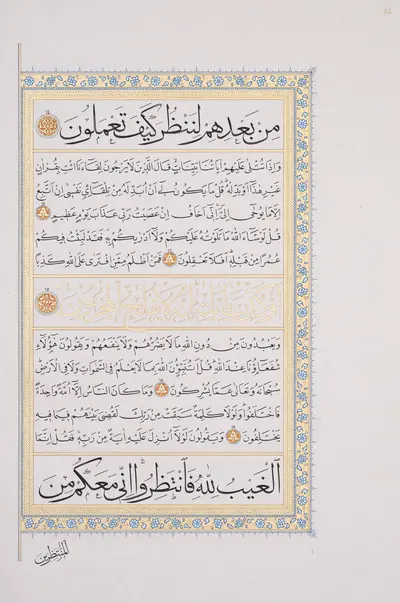 من بعدهم لننظر كيف تعملون
واذا تتلى عليهم اياتنا بينات قال الذين لا يرجون لقاءنا ائت بقران
غير هذا او بدله قل ما يكون لى ان ابدله من تلقاى نفسى ان اتبع
الا ما يوحى الى انى اخاف ان عصيت ربى عذاب يوم عظيم
قل لو شاء الله ما تلوته عليكم ولا ادريكم به فقد لبثت فيكم
عمرا من قبله افلا تعقلون فمن اظلم ممن افترى على الله كذبا
او كذب باياته انه لا يفلح المجرمون
ويعبدون من دون الله ما لا يضرهم ولا ينفعهم ويقولون هؤلاء
شفعاؤنا عند الله قل اتنبؤن الله بما لا يعلم فى السموات ولا فى الارض
سبحانه وتعالى عما يشركون وما كان الناس الا امة واحدة
فاختلفوا ولولا كلمة سبقت من ربك لقضى بينهم فيما فيه
يختلفون ويقولون لولا انزل عليه اية من ربه فقل انما
الغيب لله فانتظروا انى معكم من
المنتظرين